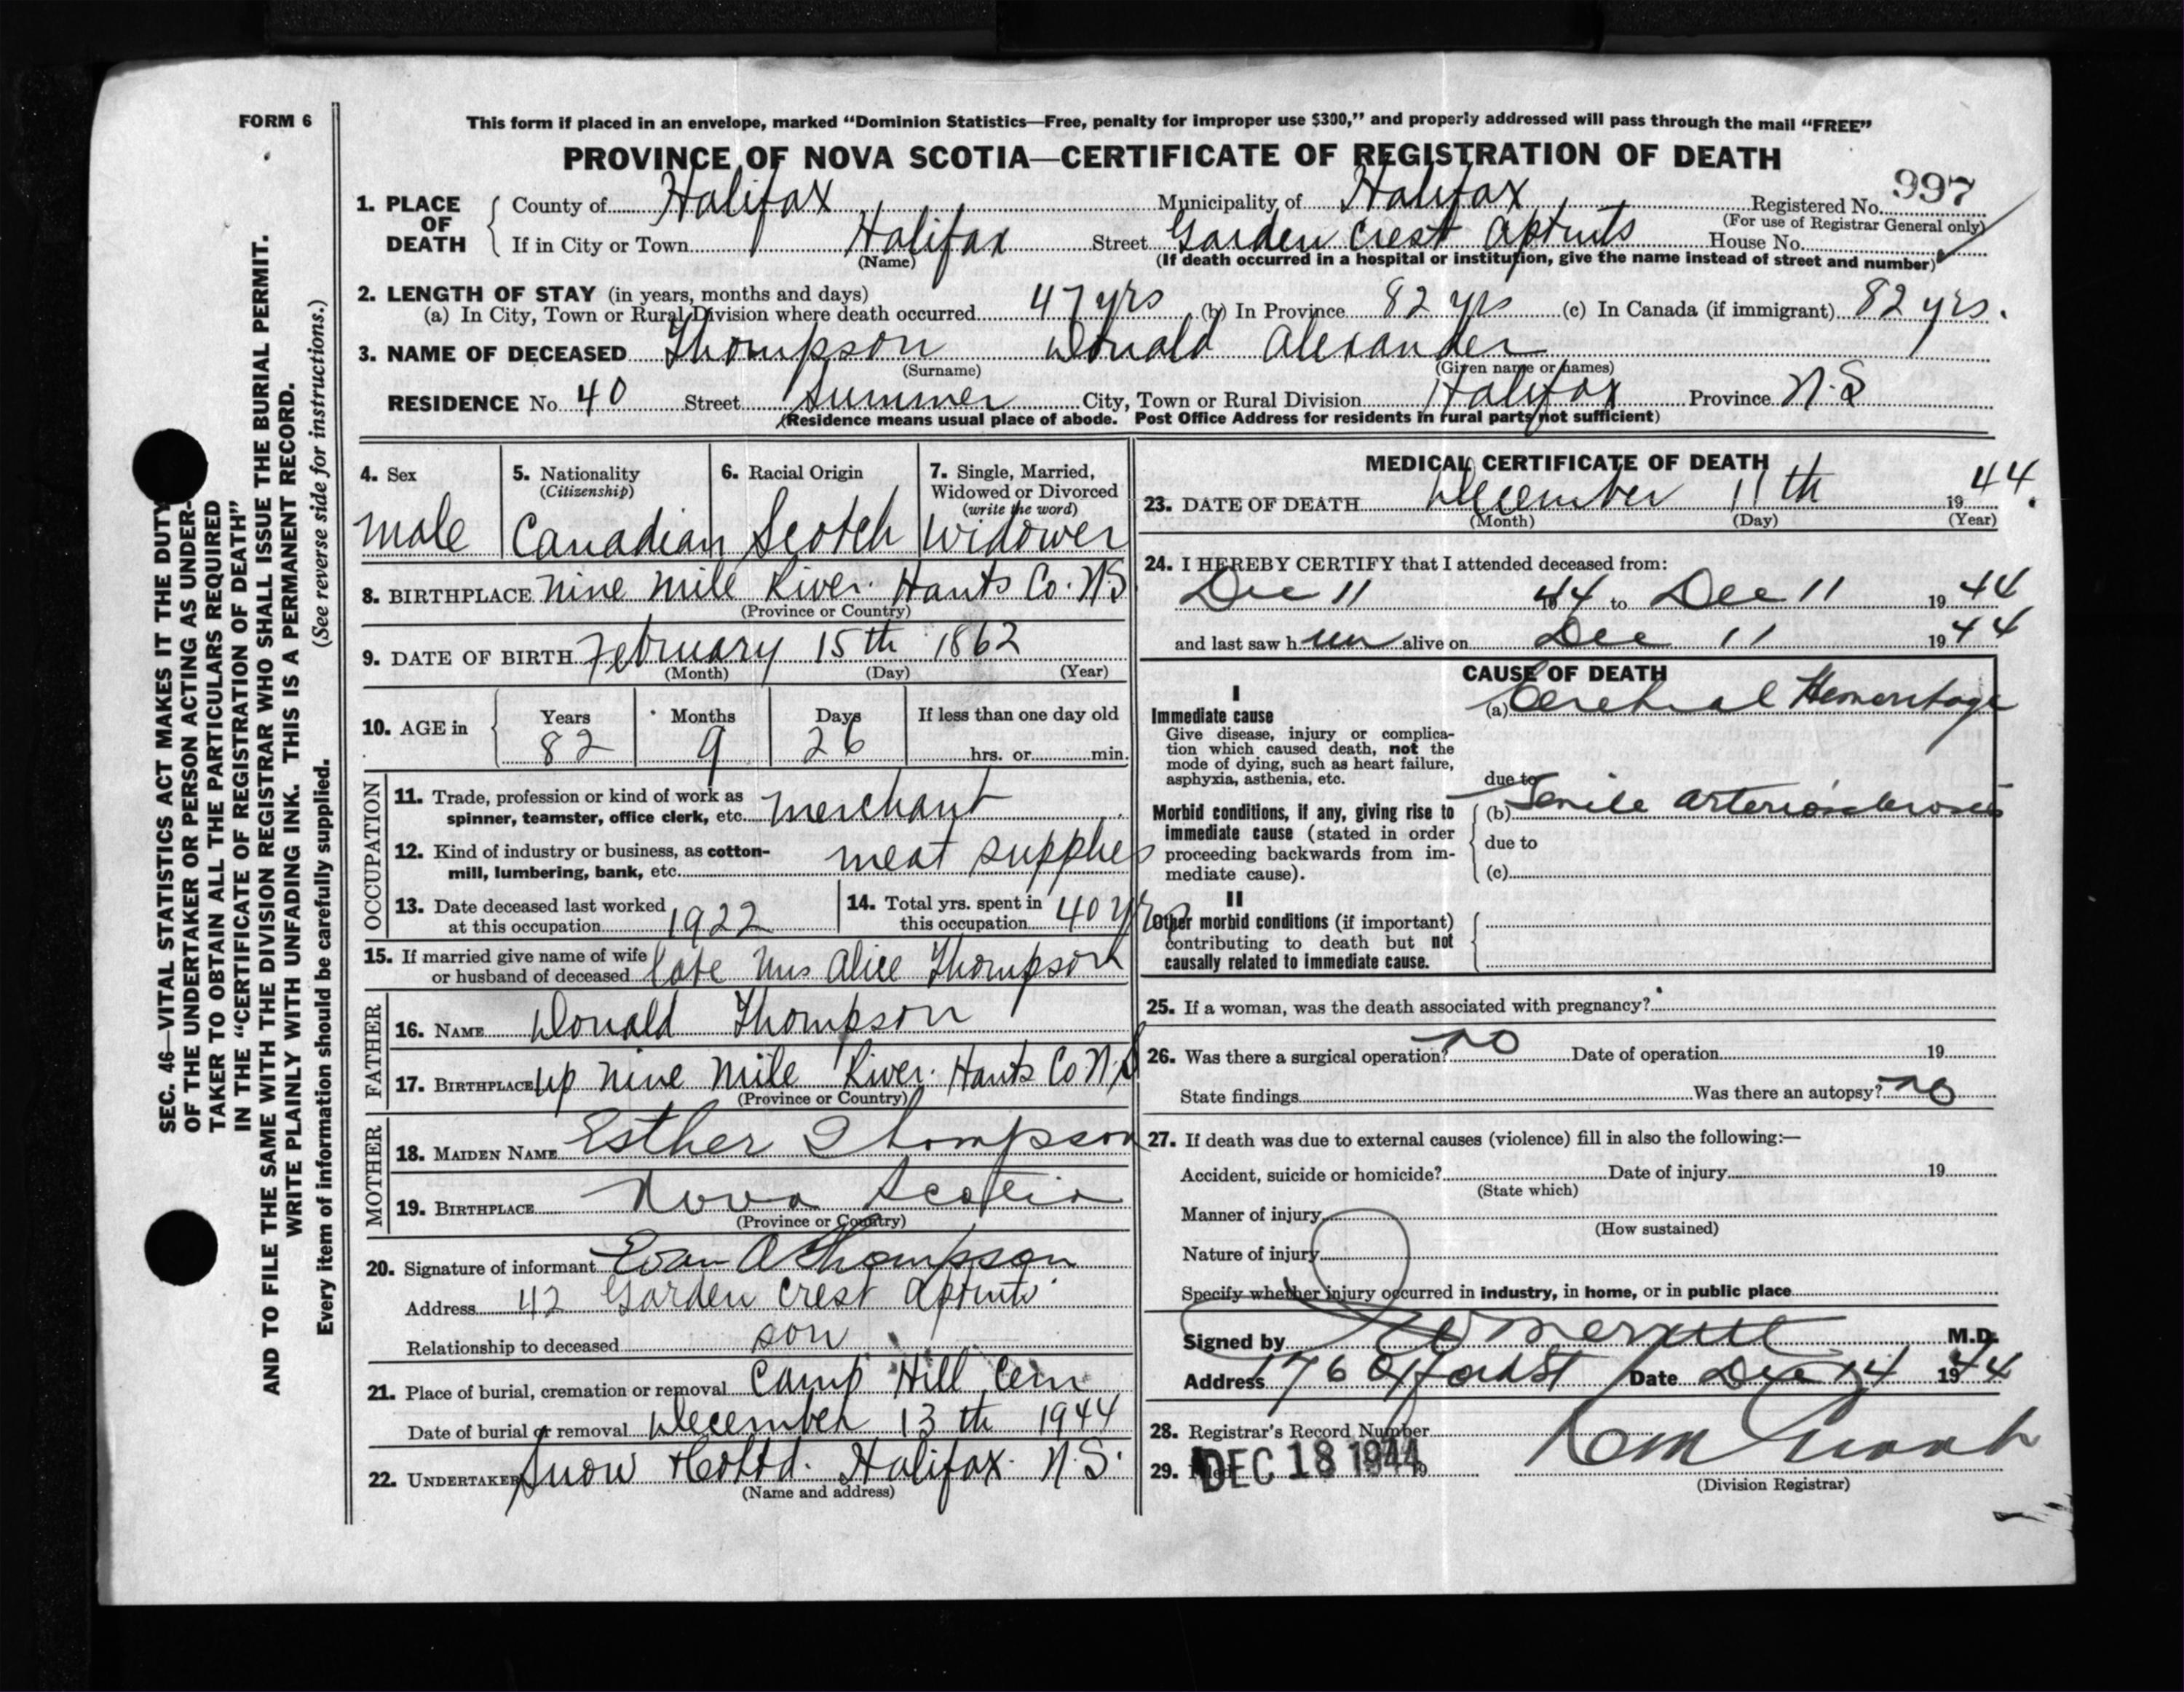 FORM 6
This form if placed in an envelope, marked “Dominion Statistics—Free, penalty for improper use $300,” and properly addressed will pass through the mail “FREE”
PROVINCE OF NOVA SCOTIA—CERTIFICATE OF REGISTRATION OF DEATH
997
1. PLACE OF DEATH County of Halifax Municipality of Halifax Registered No.
(For use of Registrar General only)
If in City or Town Halifax Street Garden Crest Aptmts House No.
(Name) (If death occurred in a hospital or institution, give the name instead of street and number)
2. LENGTH OF STAY (in years, months and days)
(a) In City, Town or Rural Division where death occurred 47 yrs (b) In Province 82 yrs (c) In Canada (if immigrant) 82 yrs.
3. NAME OF DECEASED Thompson Donald Alexander
(Surname) (Given name or names)
RESIDENCE No. 40 Street Summer City, Town or Rural Division Halifax Province N.S
(Residence means usual place of abode. Post Office Address for residents in rural parts not sufficient)
4. Sex 5. Nationality 6. Racial Origin 7. Single, Married,
(Citizenship) Widowed or Divorced
(write the word)
male Canadian Scotch Widower
8. BIRTHPLACE Nine Mile River. Hants Co. N.S
(Province or Country)
9. DATE OF BIRTH February 15th 1862
(Month) (Day) (Year)
10. AGE in Years Months Days If less than one day old
82 9 26 hrs. or min.
OCCUPATION
11. Trade, profession or kind of work as
spinner, teamster, office clerk, etc. merchant
12. Kind of industry or business, as cotton-
mill, lumbering, bank, etc. meat supplies
13. Date deceased last worked
at this occupation 1922
14. Total yrs. spent in
this occupation 40 yrs
15. If married give name of wife
or husband of deceased late Mrs Alice Thompson
FATHER
16. NAME Donald Thompson
17. BIRTHPLACE Up Nine Mile River. Hants Co N.S
(Province or Country)
MOTHER
18. MAIDEN NAME Esther Thompson
19. BIRTHPLACE Nova Scotia
(Province or Country)
20. Signature of informant Evan A Thompson
Address 42 Garden Crest Aptmts
Relationship to deceased son
21. Place of burial, cremation or removal Camp Hill Cem
Date of burial or removal December 13th 1944
22. UNDERTAKER Snow & Co Ltd. Halifax. N.S.
(Name and address)
MEDICAL CERTIFICATE OF DEATH
23. DATE OF DEATH December 11th 19 44.
(Month) (Day) (Year)
24. I HEREBY CERTIFY that I attended deceased from:
Dec 11 1944 to Dec 11 19 44
and last saw h im alive on Dec 11 19 44
CAUSE OF DEATH
I
Immediate cause (a) Cerebral Hemorrhage
Give disease, injury or complica-
tion which caused death, not the
mode of dying, such as heart failure,
asphyxia, asthenia, etc. due to
Morbid conditions, if any, giving rise to (b) Senile arteriosclerosis
immediate cause (stated in order
proceeding backwards from im- due to
mediate cause). (c)
II
Other morbid conditions (if important)
contributing to death but not
causally related to immediate cause.
25. If a woman, was the death associated with pregnancy?
26. Was there a surgical operation? no Date of operation 19
State findings Was there an autopsy? no
27. If death was due to external causes (violence) fill in also the following:—
Accident, suicide or homicide? Date of injury 19
(State which)
Manner of injury
(How sustained)
Nature of injury
Specify whether injury occurred in industry, in home, or in public place
Signed by M.D.
Address 176 Oxford St Date Dec 14 1944
28. Registrar's Record Number
29. Filed DEC 18 1944 19
(Division Registrar)
SEC. 46—VITAL STATISTICS ACT MAKES IT THE DUTY
OF THE UNDERTAKER OR PERSON ACTING AS UNDER-
TAKER TO OBTAIN ALL THE PARTICULARS REQUIRED
IN THE “CERTIFICATE OF REGISTRATION OF DEATH”
AND TO FILE THE SAME WITH THE DIVISION REGISTRAR WHO SHALL ISSUE THE BURIAL PERMIT.
WRITE PLAINLY WITH UNFADING INK. THIS IS A PERMANENT RECORD.
Every item of information should be carefully supplied. (See reverse side for instructions.)